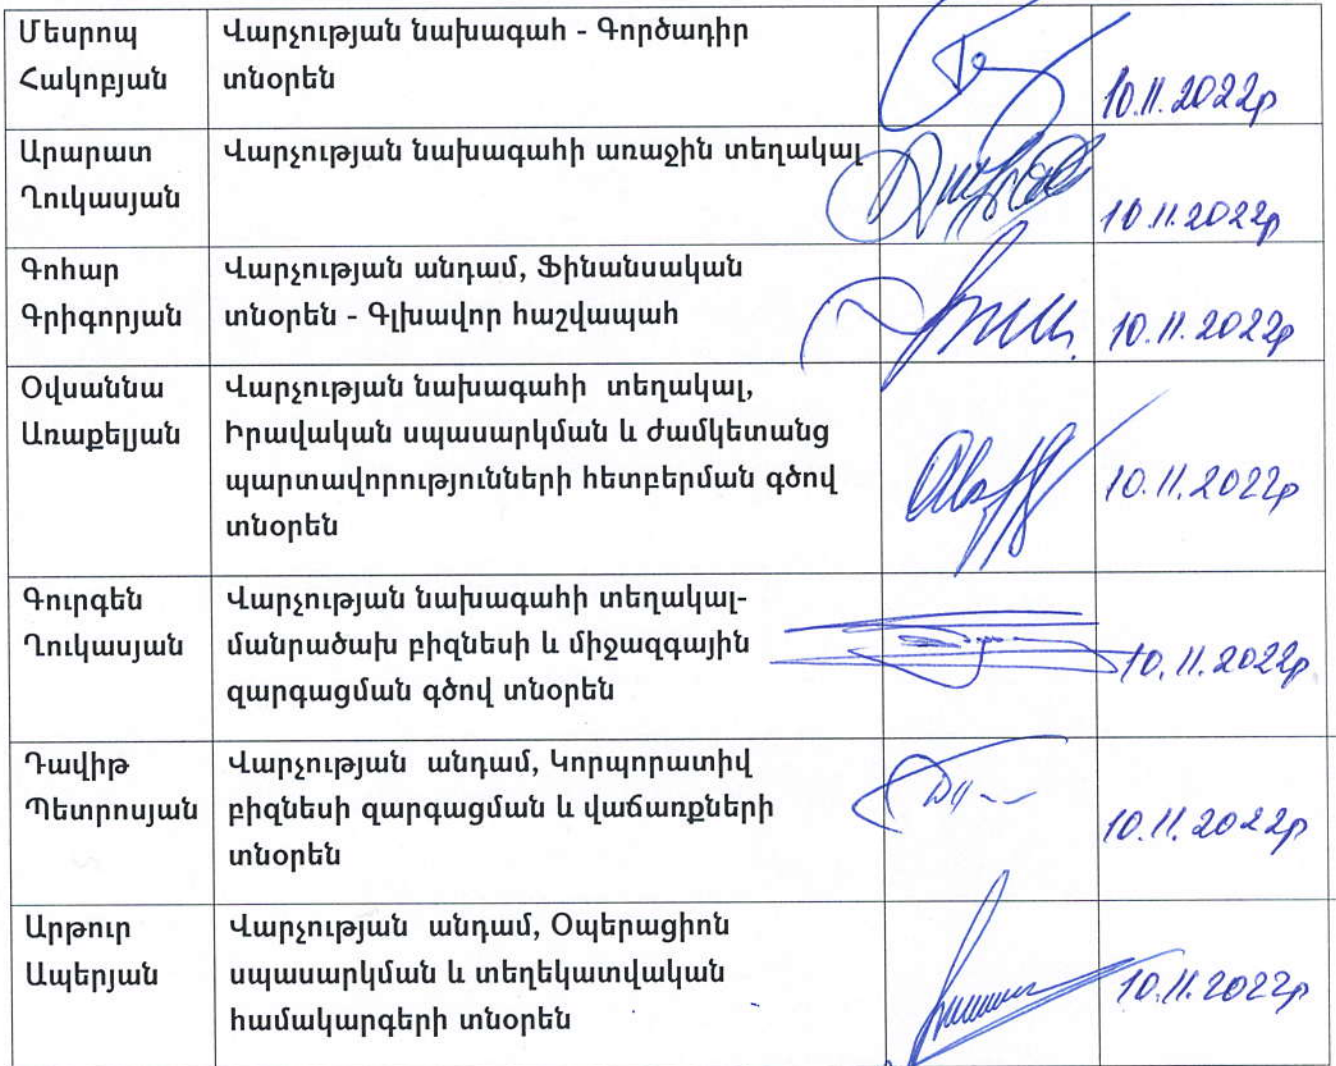 Մեսրոպ Հակոբյան
Վարչության նախագահ - Գործադիր
տնօրեն
10.11.2022թ
Արարատ Ղուկասյան
Վարչության նախագահի առաջին տեղակալ
10.11.2022թ
Գոհար Գրիգորյան
Վարչության անդամ, Ֆինանսական
տնօրեն - Գլխավոր հաշվապահ
10.11.2022թ
Օվսաննա Առաքելյան
Վարչության նախագահի տեղակալ,
Իրավական սպասարկման և ժամկետանց
պարտավորությունների հետբերման գծով
տնօրեն
10.11.2022թ
Գուրգեն Ղուկասյան
Վարչության նախագահի տեղակալ-
մանրածախ բիզնեսի և միջազգային
զարգացման գծով տնօրեն
10.11.2022թ
Դավիթ Պետրոսյան
Վարչության անդամ, Կորպորատիվ
բիզնեսի զարգացման և վաճառքների
տնօրեն
10.11.2022թ
Արթուր Ապերյան
Վարչության անդամ, Օպերացիոն
սպասարկման և տեղեկատվական
համակարգերի տնօրեն
10.11.2022թ